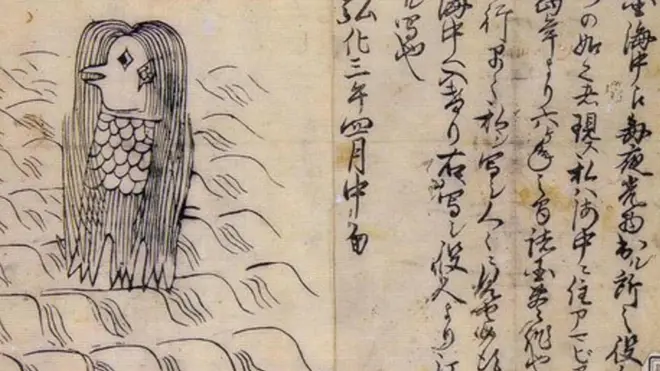 国海中え毎夜光物出ル所之役
づの如く者現ス私ハ海中ニ住アマビヱ
当年より六ヶ年之間諸国豊作也
行早々私シ写シ人々ニ見セ候得
海中へ入けり右写シ役人より江
写也
弘化三年四月中旬